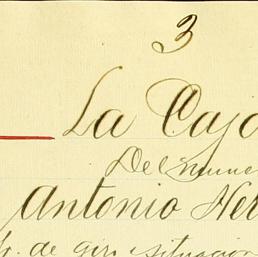 3
La Caja
Del
Antonio Her
de giro situacion